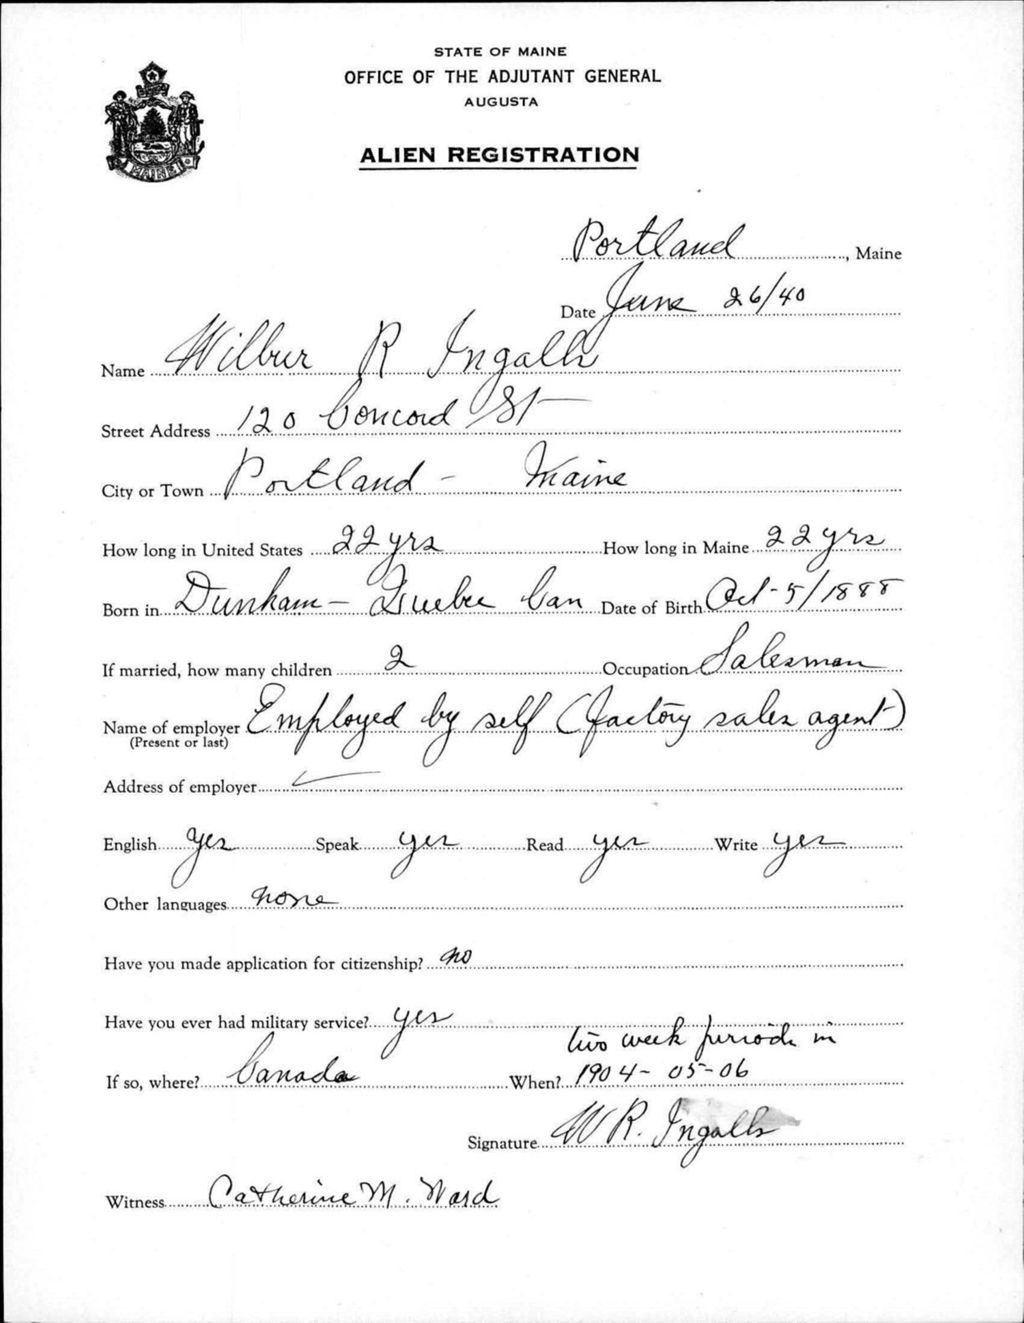 STATE OF MAINE
OFFICE OF THE ADJUTANT GENERAL
AUGUSTA
ALIEN REGISTRATION
Portland, Maine
Date June 26/40
Name Wilbur R Ingalls
Street Address 120 Concord St
City or Town Portland - Maine
How long in United States 22 yrs How long in Maine 22 yrs
Born in Dunham - Quebec Can Date of Birth Oct - 5/1888
If married, how many children 2 Occupation Salesman
Name of employer Employed by self (factory sales agent)
(Present or last)
Address of employer
English yes Speak yes Read yes Write yes
Other languages none
Have you made application for citizenship? no
Have you ever had military service? yes
two week periods in
If so, where? Canada When? 1904 - 05 - 06
Signature W R. Ingalls
Witness Catherine M. Ward
MAINE